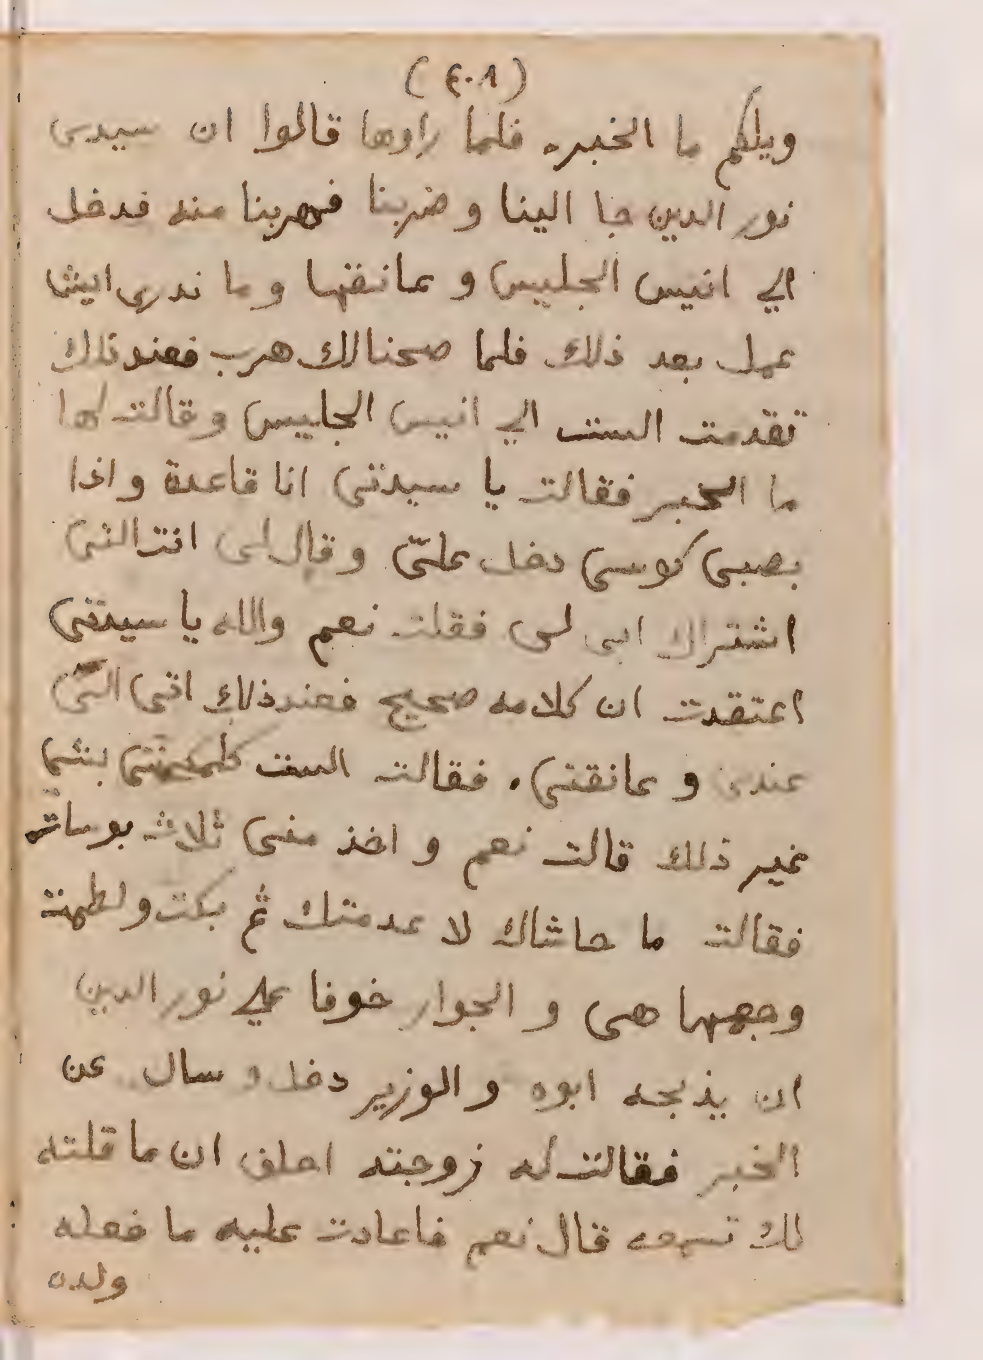 (٤٠٨)
ويلكم ما الخبر. فلما راوها قالوا ان سيدى
نور الدين جا الينا وضربنا فهربنا منه فدخل
الي انيس الجليس و عانقها وما ندرى ايش
عمل بعد ذلك فلما صحنا لك هرب فعند ذلك
تقدمت الست الي انيس الجليس وقالت لها
ما الخبر فقالت يا سيدتى انا قاعدة واذا
بصبى كويسى دخل علىّ وقال لى انت التى
اشتراك ابى لى فقلت نعم والله يا سيدتى
اعتقدت ان كلامه صحيح فعند ذلك اتى الىّ
عندى و عانقنى. فقالت الست بشى
غير ذلك قالت نعم و اخذ منى ثلاث بوسات
فقالت ما حاشاك لا عدمتك ثم بكت ولطمت
وجهها هى و الجوار خوفا علي نور الدين
ان يذبحه ابوه و الوزير دخل و سال عن
الخبر فقالت له زوجته احلف ان ما قلته
لك تسمعه قال نعم فاعادت عليه ما فعله
ولده